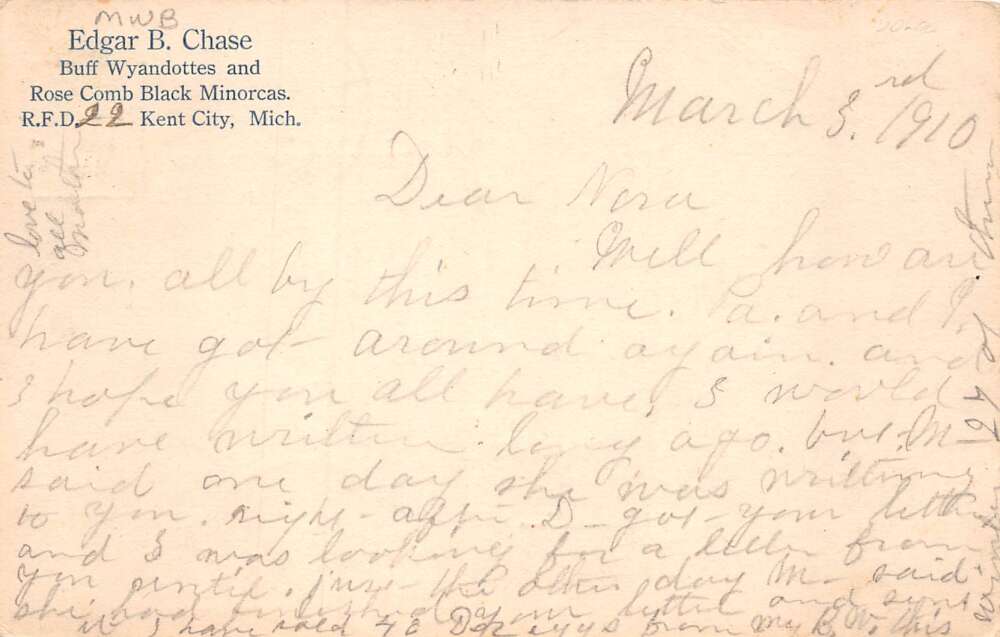 MWB
Edgar B. Chase
Buff Wyandottes and
Rose Comb Black Minorcas.
R.F.D. 22 Kent City, Mich.
March 3rd 1910
Dear Nora
Well how are
you all by this time. Pa. and M
have got around again. and
I hope you all have. I would
have written long ago. but M
said one day she was writing
to you. right after D got your letter
and I was looking for a letter from
you until just the other day M said
she had finished your letter and sent
I have sold 48 Doz eggs from my B.W. this
love to
all